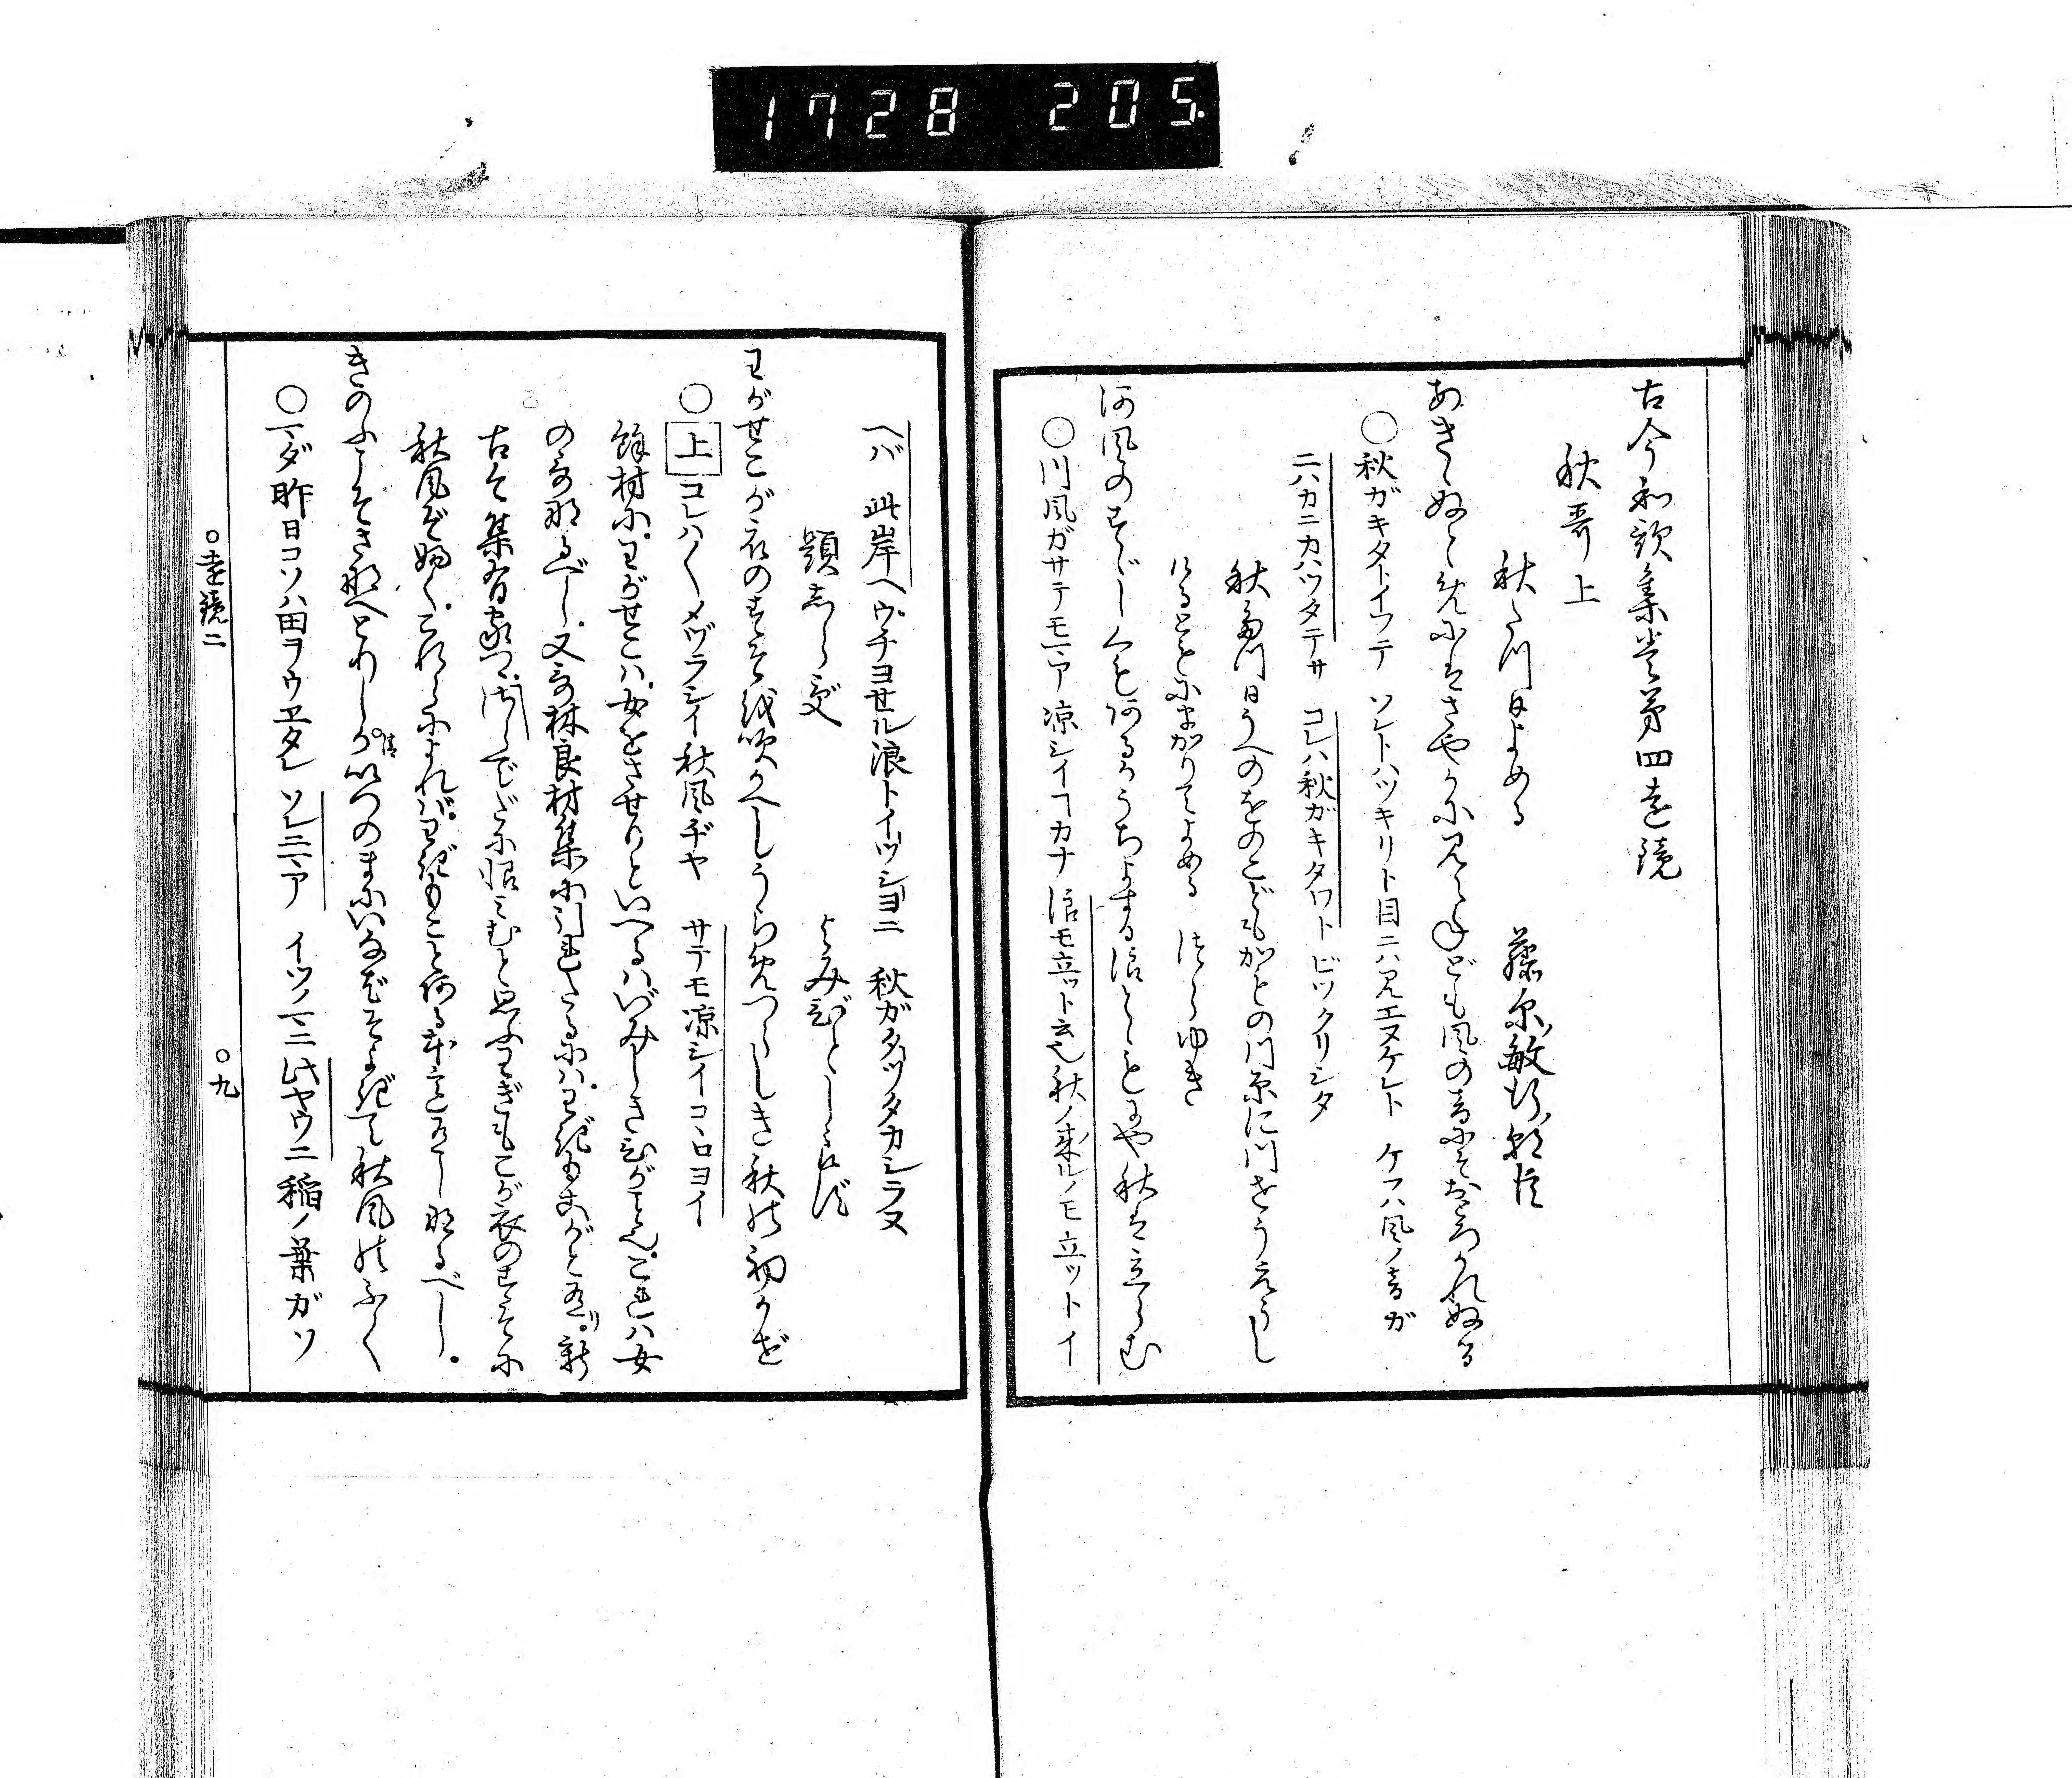 1728 205.
古今和歌集巻第四遠鏡
秋哥上
秋たつ日よめる 藤原敏行朝臣
あききぬと めにはさやかに見えねども風の音にぞおどろかれぬる
○秋ガキタトイフテ ソレトハツキリト目ニハ見エヌケレト ケフハ風ノ音ガ
ニハカニカハツタテサ コレハ秋ガキタワト ビツクリシタ
秋たつ日うへのをのこどもかもの川原に川せうえうし
けるともにまかりてよめる つらゆき
河風のすゞしくもあるかうちよする浪とゝもにや秋は立らむ
○川風ガサテモマア凉シイコカナ 浪モ立ツト云ヒ秋ノ来ルノモ立ツトイ
ヘバ 此岸ヘウチヨセル浪トイツシヨニ 秋ガタツタカシラヌ
題しらず よみ人しらず
わがせこが衣のすそを吹かへしうらめづらしき秋の初かぜ
○上コレハ〱メヅラシイ秋風ヂヤ サテモ凉シイコヽロヨイ
餘材に。わがせことハ。女をさせりといへるハいみしきひがこと也。これハ女
の哥なるべし。又哥林良材集に引れたるにハ。わぎもこがと有。新
秋風ぞ吹く。これらによれバ。わぎもこと有る本も有しなるべし。
きのふこそさなへとりしかいつのまにいなばそよぎて秋風のふく
○マダ昨日コソハ田ヲウヱタレ ソレニマア イツノマニ此ヤウニ稲ノ葉ガソ
○遠鏡二 ○九